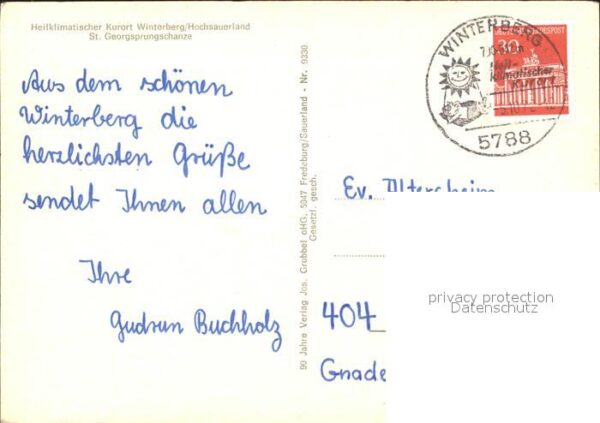 Heilklimatischer Kurort Winterberg/Hochsauerland
St. Georgsprungschanze
Aus dem schönen
Winterberg die
herzlichsten Grüße
sendet Ihnen allen
Ihre
Gudrun Buchholz
90 Jahre Verlag Jos. Grobbel oHG, 5947 Fredeburg/Sauerland - Nr. 9330
Gesetzl. gesch.
WINTERBERG
Heil-
klimatischer
Kurort
5788
30
DEUTSCHE BUNDESPOST
Ev. Altersheim
404
Gnade
privacy protection
Datenschutz